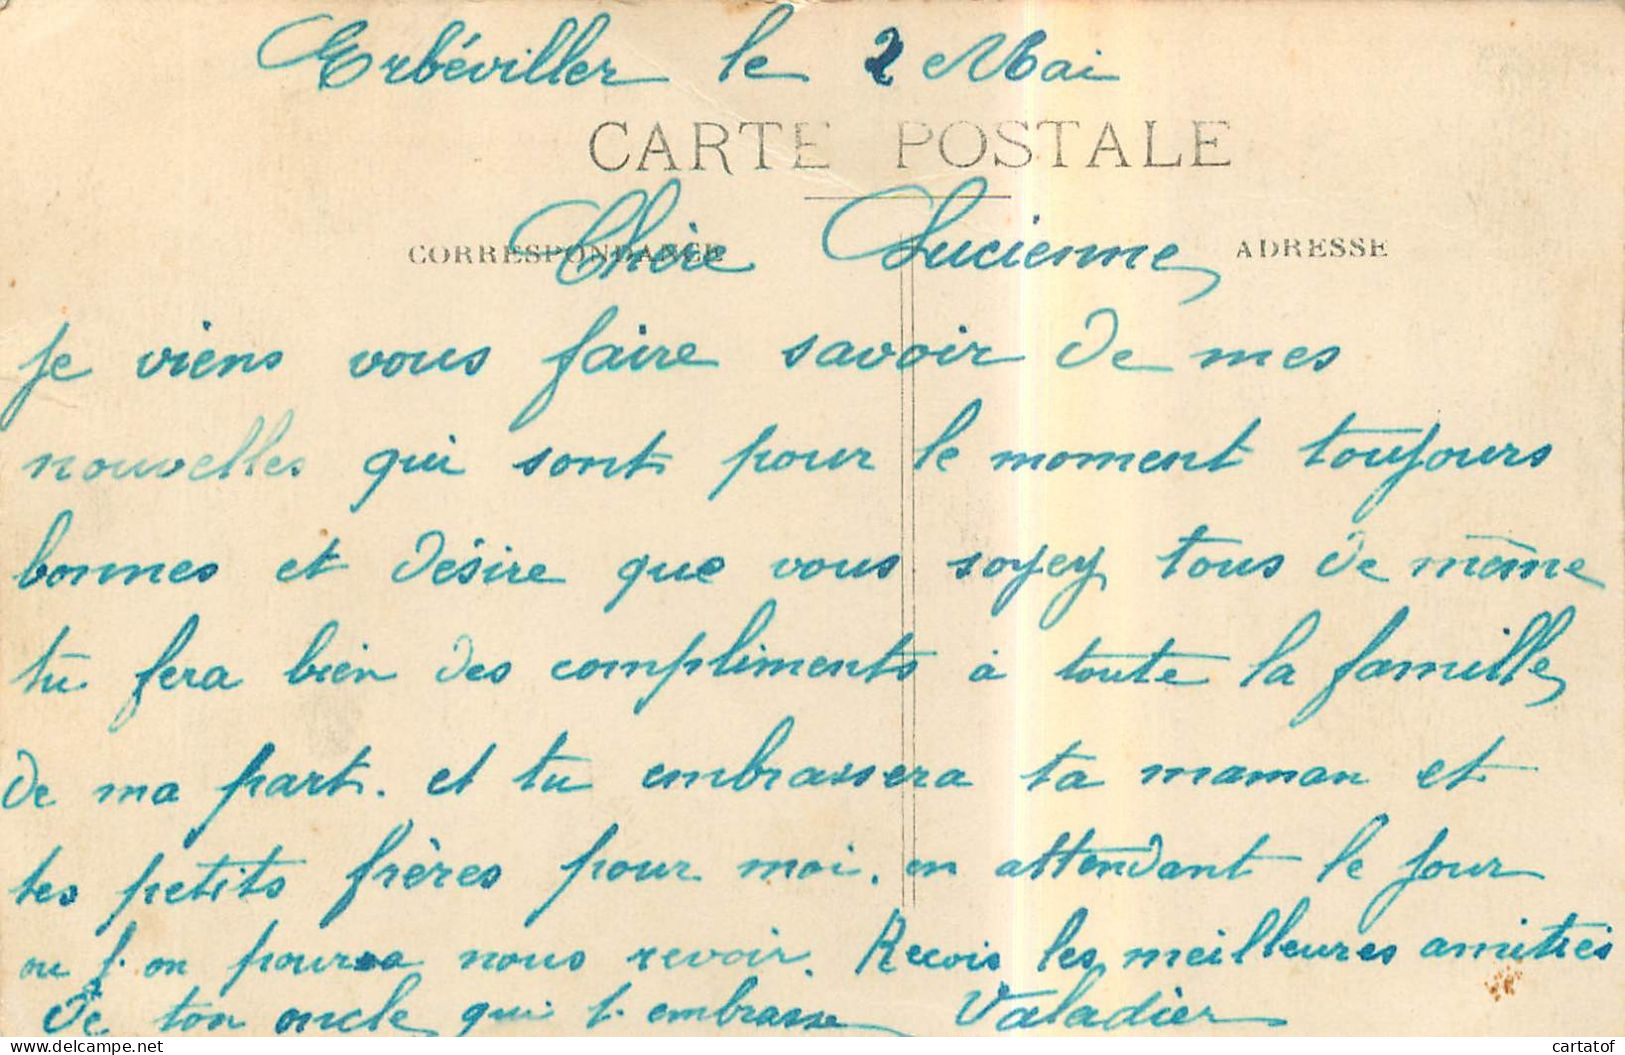 Erbéviller le 2 Mai
CARTE POSTALE
CORRESPONDANCE
ADRESSE
Chère Lucienne
Je viens vous faire savoir de mes
nouvelles qui sont pour le moment toujours
bonnes et désire que vous soyez tous de même
tu fera bien des compliments à toute la famille
de ma part. et tu embrassera ta maman et
tes petits frères pour moi. en attendant le jour
ou l'on pourra nous revoir. Recois les meilleures amitiés
de ton oncle qui t'embrasse Valadier
Delcampe.net
cartatof